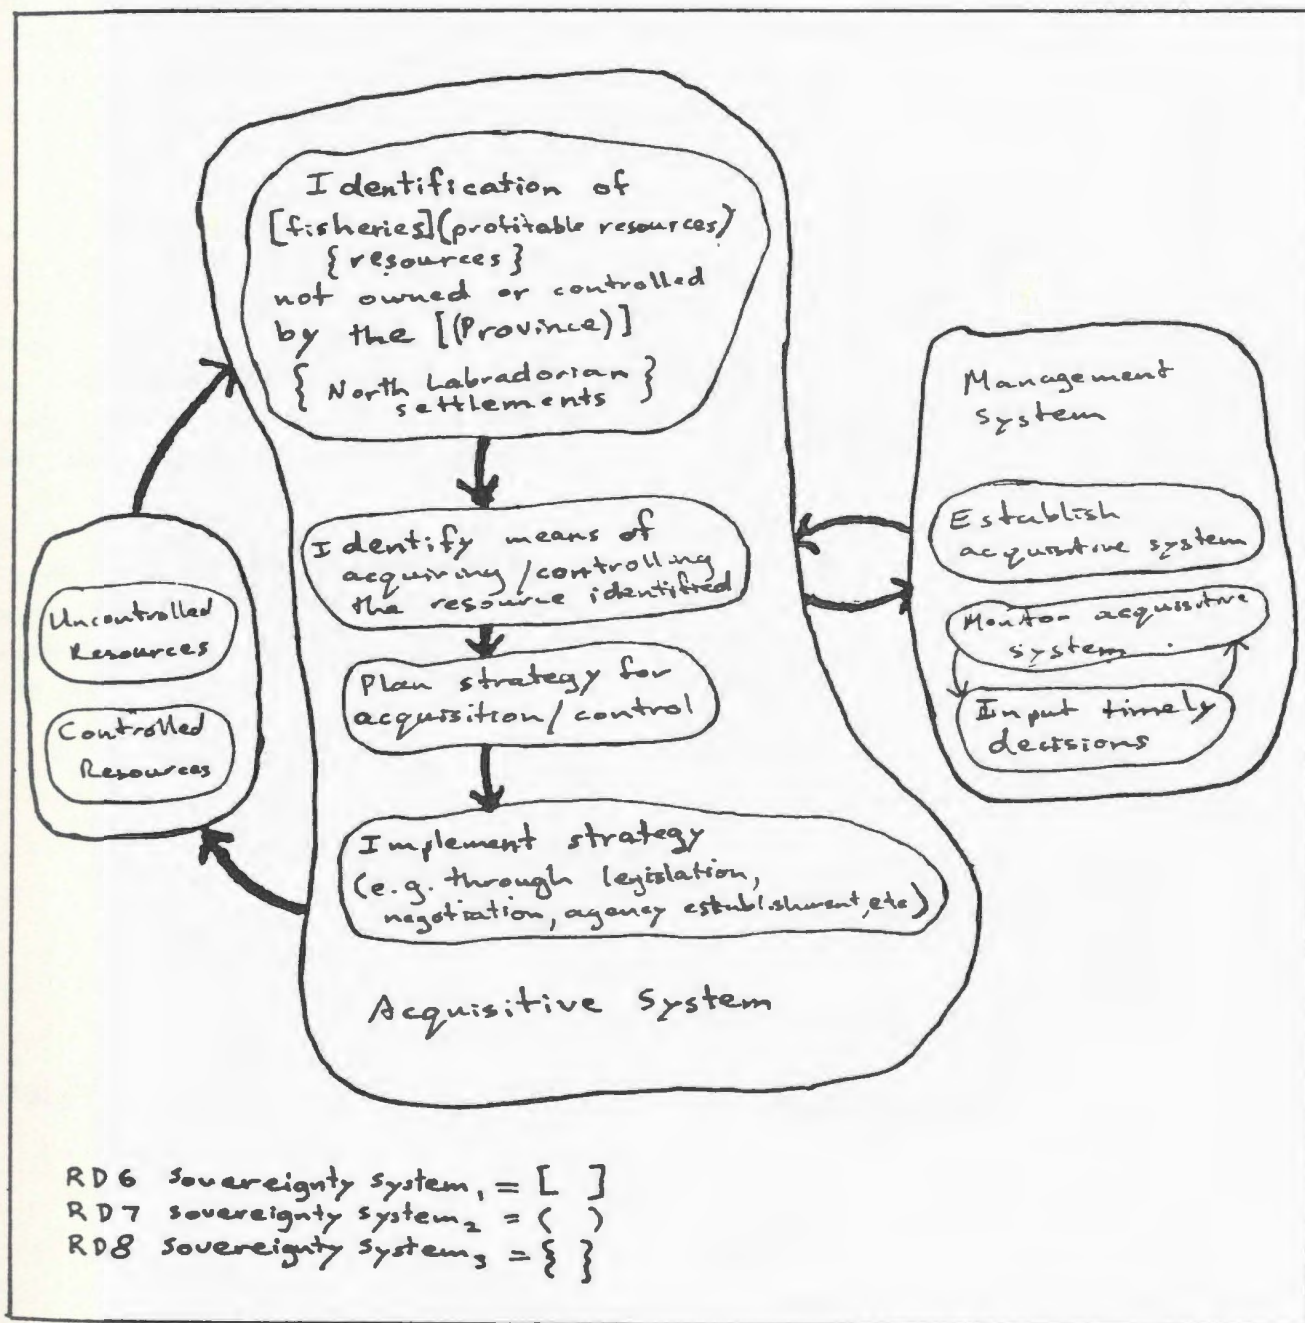 Identification of
[fisheries](profitable resources)
{resources}
not owned or controlled
by the [(Province)]
{ North Labradorian }
settlements
Identify means of
acquiring/controlling
the resource identified
Plan strategy for
acquisition/control
Implement strategy
(e.g. through legislation,
negotiation, agency establishment, etc)
Acquisitive System
Uncontrolled
Resources
Controlled
Resources
Management
System
Establish
acquisitive system
Monitor acquisitive
system
Input timely
decisions
RD6 sovereignty system₁ = [ ]
RD7 sovereignty system₂ = ( )
RD8 sovereignty system₃ = { }